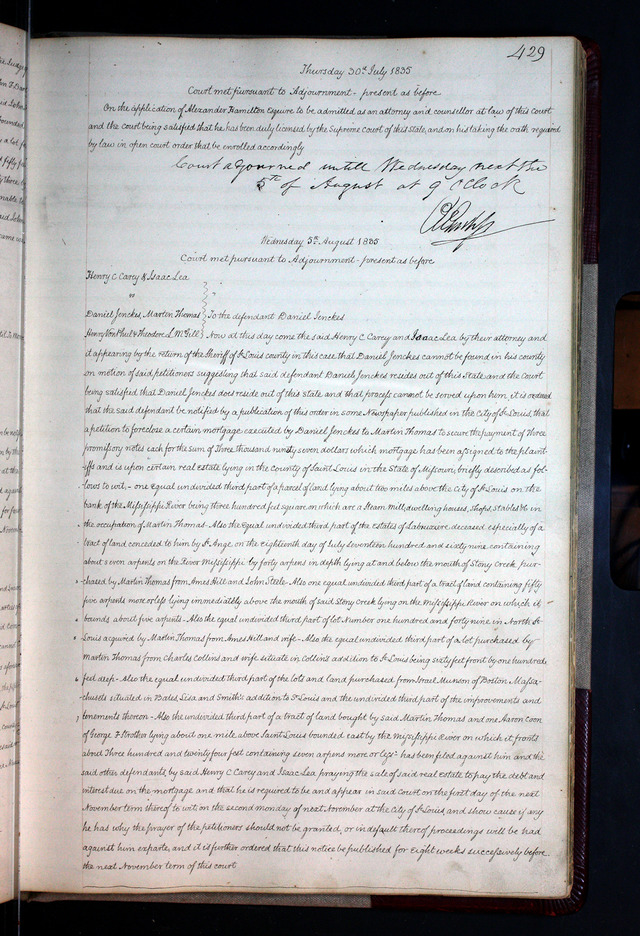 429
Thursday 30th July 1835
Court met pursuant to Adjournment - present as before
On the application of Alexander Hamilton Esquire to be admitted as an attorney and counsellor at law of this Court
and the court being satisfied that he has been duly licensed by the Supreme Court of this State, and on his taking the oath required
by law in open court order that he enrolled accordingly
Court adjourned untill Wednesday next the
5th of August at 9 OClock
Wednesday 5th August 1835
Court met pursuant to Adjournment - present as before
Henry C Carey & Isaac Lea
vs
Daniel Jenckes, Martin Thomas } To the defendant Daniel Jenckes
Henry Von Phul & Theodore L McGill } Now at this day come the said Henry C Carey and Isaac Lea by their attorney and
it appearing by the return of the Sheriff of St Louis county in this case that Daniel Jenckes cannot be found in his county
on motion of said petitioners suggesting that said defendant Daniel Jenckes resides out of this State and the Court
being satisfied that Daniel Jenckes does reside out of this State and that process cannot be served upon him it is ordered
that the said defendant be notified by a publication of this order in some Newspaper published in the City of St Louis, that
a petition to foreclose a certain mortgage executed by Daniel Jenckes to Martin Thomas to secure the payment of Three
promissory notes each for the sum of Three thousand ninety seven dollars which mortgage has been assigned to the plaint-
iffs and is upon certain real estate lying in the county of Saint Louis in the State of Missouri, briefly described as fol-
lows to wit, - one Equal undivided third part of a parcel of land lying about two miles above the City of St Louis on the
bank of the Mississippi River being three hundred feet square on which are a Steam Mill, dwelling houses, Shops, Stables &c in
the occupation of Martin Thomas - Also the Equal undivided third part of the Estates of Labuxiere deceased especially of a
tract of land conceded to him by St Ange on the Eighteenth day of July seventeen hundred and sixty nine containing
about seven arpents on the River Mississippi by forty arpens in depth lying at and below the mouth of Stony Creek pur-
chased by Martin Thomas from Ames Hill and John Steele - Also one equal undivided third part of a tract of land containing fifty
five arpens more or less lying immediately above the mouth of said Stony Creek lying on the Mississippi River on which it
bounds about five arpents - Also the equal undivided third part of lot Number one hundred and forty nine in North St
Louis acquired by Martin Thomas from Ames Hill and wife - Also the equal undivided third part of a lot purchased by
Martin Thomas from Charles Collins and wife situate in Collins addition to St Louis being sixty feet front by one hundred
feet deep - Also the equal undivided third part of the lots and land purchased from Israel Munson of Boston Massa-
chusetts situated in Bates, Lisa and Smith's addition to St Louis and the undivided third part of the improvements and
tenements thereon - Also the undivided third part of a tract of land bought by said Martin Thomas and one Aaron Coon
of George F Strother lying about one mile above Saint Louis bounded east by the Mississippi River on which it fronts
about Three hundred and twenty four feet containing seven arpens more or less - has been filed against him and the
said other defendants, by said Henry C Carey and Isaac Lea praying the sale of said real estate to pay the debt and
interest due on the mortgage and that he is required to be and appear in said court on the first day of the next
November term thereof to wit on the second monday of next November at the City of St Louis and show cause if any
he has why the prayer of the petitioners should not be granted, or in default thereof proceedings will be had
against him exparte, and it is further ordered that this notice be published for Eight weeks successively before
the next November term of this court